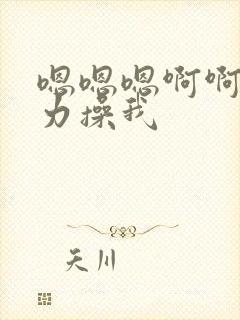 嗯嗯嗯啊啊
力操我
天川